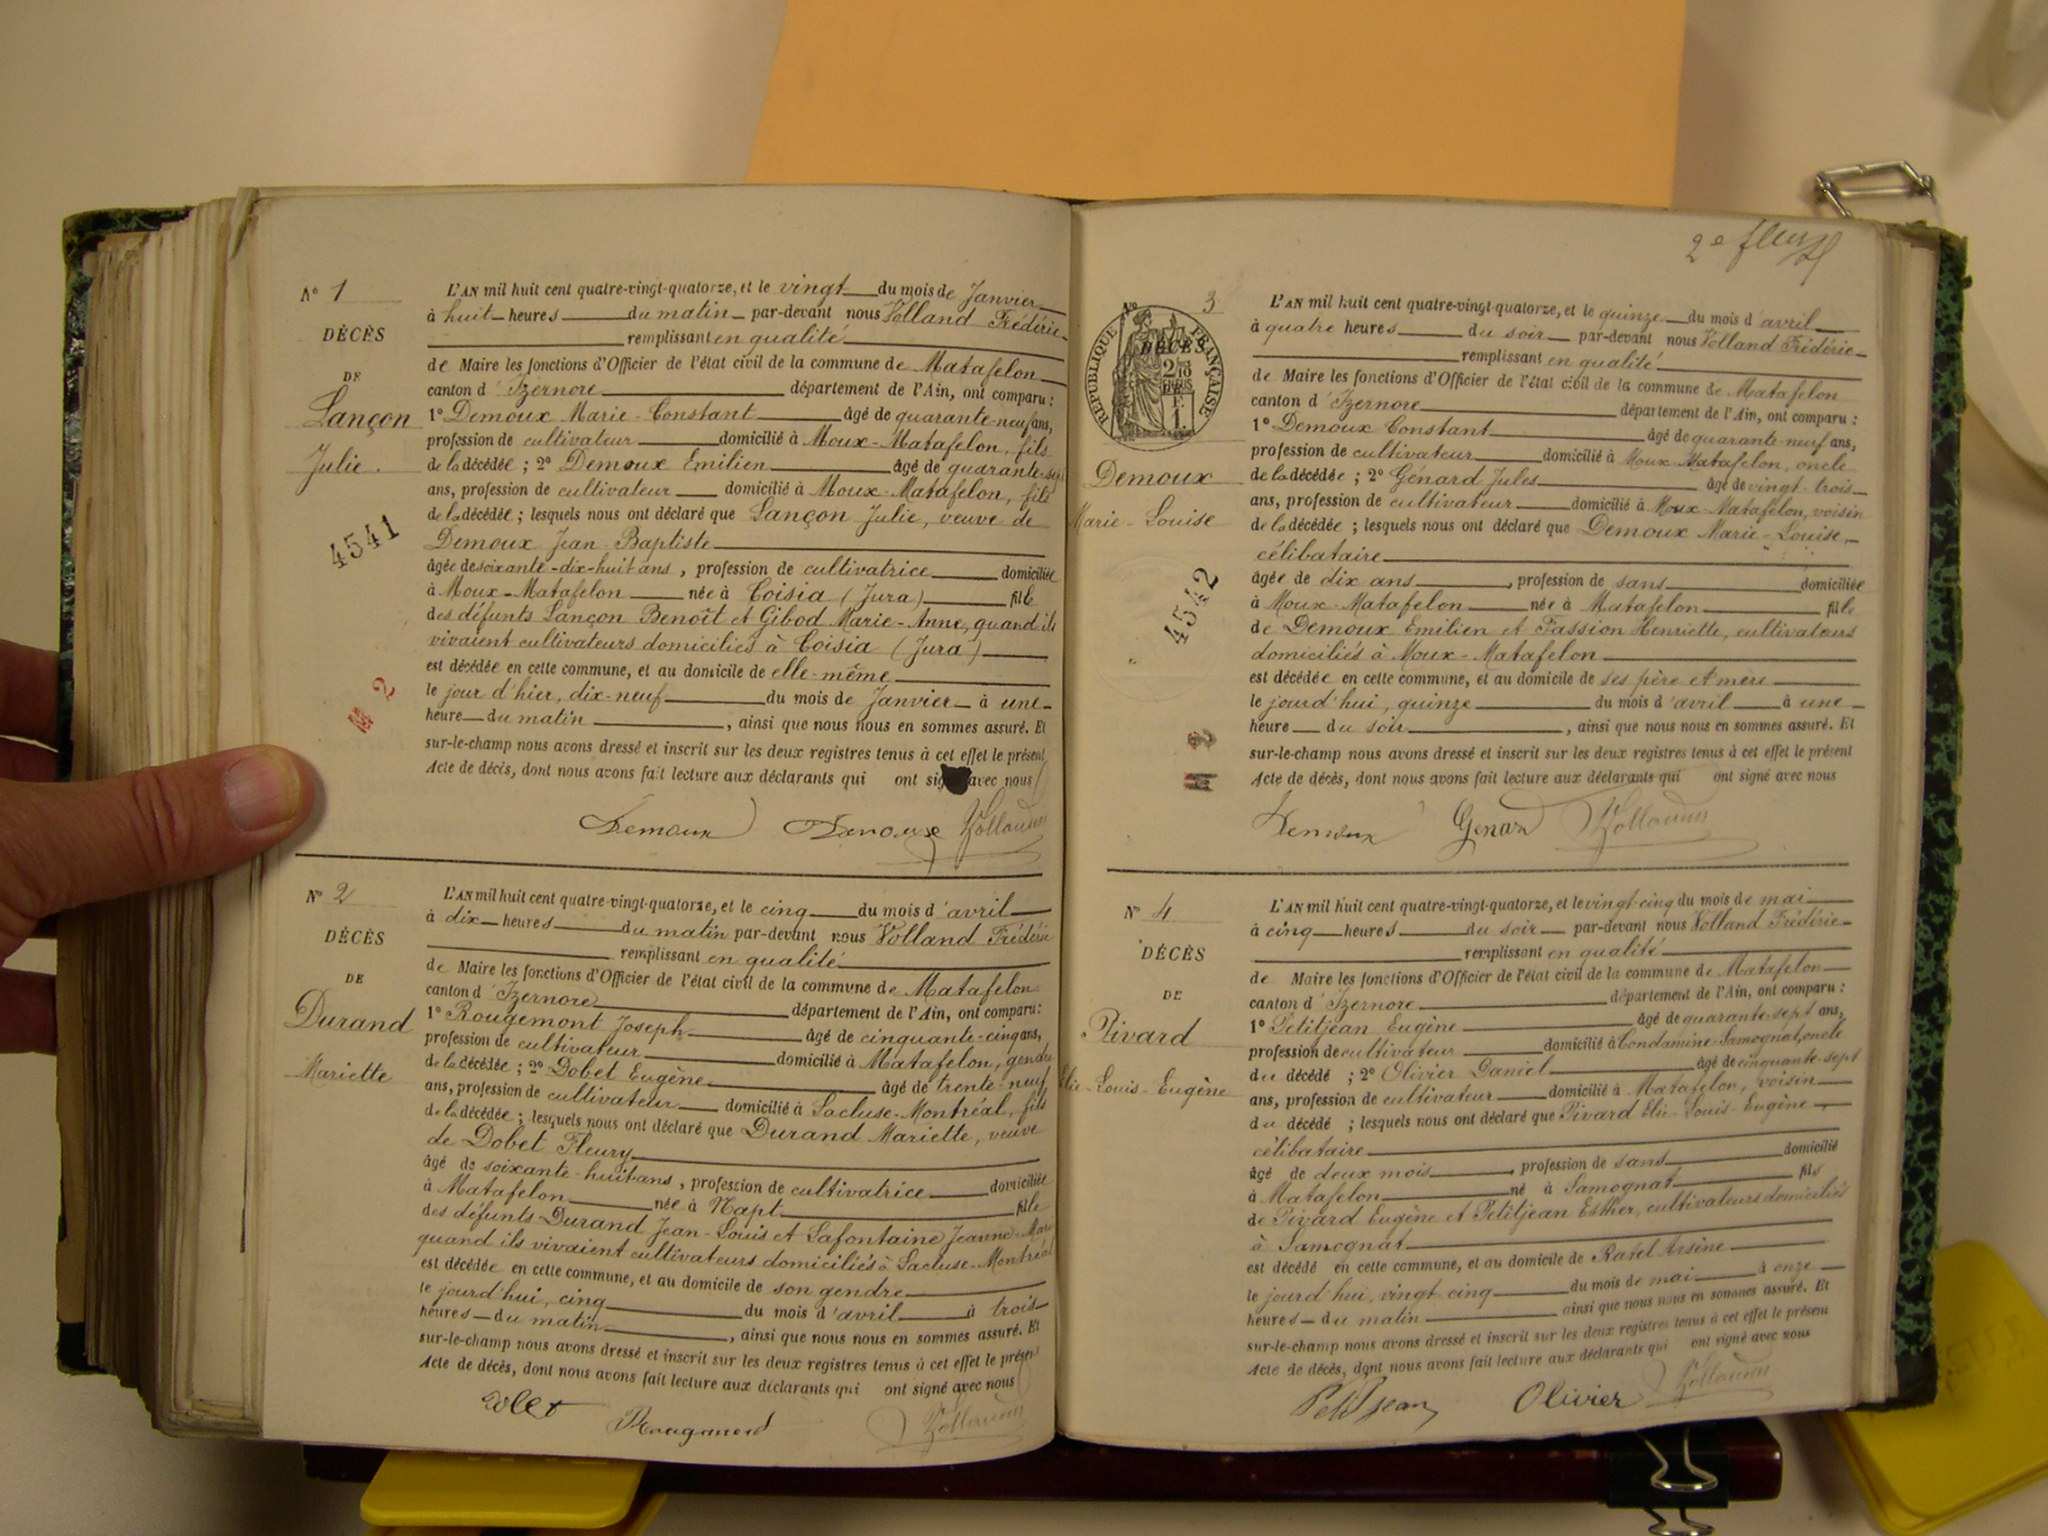 N° 1
L'AN mil huit cent quatre-vingt-quatorze, et le vingt du mois de Janvier
à huit heures du matin par-devant nous Volland Frédéric
DÉCÈS
remplissant en qualité
de Maire les fonctions d'Officier de l'état civil de la commune de Matafelon
DE
canton d'Izernore département de l'Ain, ont comparu :
Lançon
1° Demoux Marie-Constant âgé de quarante-neuf ans,
profession de cultivateur domicilié à Moux-Matafelon, fils
Julie.
de la décédée ; 2° Demoux Emilien âgé de quarante-sept
ans, profession de cultivateur domicilié à Moux-Matafelon, fils
de la décédée ; lesquels nous ont déclaré que Lançon Julie, veuve de
4541
Demoux Jean Baptiste
âgée de soixante-dix-huit ans, profession de cultivatrice domiciliée
à Moux-Matafelon née à Coisia (Jura) fille
des défunts Lançon Benoît et Gibod Marie-Anne, quand ils
vivaient cultivateurs domiciliés à Coisia (Jura)
est décédée en cette commune, et au domicile de elle-même
M 2
le jour d'hier, dix-neuf du mois de Janvier à une
heure du matin, ainsi que nous nous en sommes assuré. Et
sur-le-champ nous avons dressé et inscrit sur les deux registres tenus à cet effet le présent
Acte de décès, dont nous avons fait lecture aux déclarants qui ont signé avec nous
Demoux Demoux Volland
N° 2
L'AN mil huit cent quatre-vingt-quatorze, et le cinq du mois d'avril
à dix heures du matin par-devant nous Volland Frédéric
DÉCÈS
remplissant en qualité
DE
de Maire les fonctions d'Officier de l'état civil de la commune de Matafelon
canton d'Izernore département de l'Ain, ont comparu :
Durand
1° Rougemont Joseph âgé de cinquante-cinq ans,
profession de cultivateur domicilié à Matafelon, gendre
Mariette
de la décédée ; 2° Dobet Eugène âgé de trente-neuf
ans, profession de cultivateur domicilié à Lacluse-Montréal, fils
de la décédée ; lesquels nous ont déclaré que Durand Mariette, veuve
de Dobet Fleury
âgé de soixante-huit ans, profession de cultivatrice domiciliée
à Matafelon née à Napt fille
des défunts Durand Jean-Louis et Lafontaine Jeanne-Marie
quand ils vivaient cultivateurs domiciliés à Lacluse-Montréal
est décédée en cette commune, et au domicile de son gendre
le jourd'hui, cinq du mois d'avril à trois
heures du matin, ainsi que nous nous en sommes assuré. Et
sur-le-champ nous avons dressé et inscrit sur les deux registres tenus à cet effet le présent
Acte de décès, dont nous avons fait lecture aux déclarants qui ont signé avec nous
Rougemond Volland
2e
N° 3
RÉPUBLIQUE FRANÇAISE
DÉCÈS
L'AN mil huit cent quatre-vingt-quatorze, et le quinze du mois d'avril
à quatre heures du soir par-devant nous Volland Frédéric
remplissant en qualité
de Maire les fonctions d'Officier de l'état civil de la commune de Matafelon
canton d'Izernore département de l'Ain, ont comparu :
1° Demoux Constant âgé de quarante-neuf ans,
profession de cultivateur domicilié à Moux Matafelon, oncle
Demoux
de la décédée ; 2° Génard Jules âgé de vingt-trois
ans, profession de cultivateur domicilié à Moux-Matafelon, voisin
Marie-Louise
de la décédée ; lesquels nous ont déclaré que Demoux Marie-Louise,
célibataire
4542
âgée de dix ans, profession de sans domiciliée
à Moux-Matafelon née à Matafelon fille
de Demoux Emilien et Fassion Henriette, cultivateurs
domiciliés à Moux-Matafelon
est décédée en cette commune, et au domicile de ses père et mère
le jourd'hui, quinze du mois d'avril à une
heure du soir, ainsi que nous nous en sommes assuré. Et
M 2
sur-le-champ nous avons dressé et inscrit sur les deux registres tenus à cet effet le présent
Acte de décès, dont nous avons fait lecture aux déclarants qui ont signé avec nous
Demoux Genard Volland
N° 4
L'AN mil huit cent quatre-vingt-quatorze, et le vingt-cinq du mois de mai
à cinq heures du soir par-devant nous Volland Frédéric
DÉCÈS
remplissant en qualité
de Maire les fonctions d'Officier de l'état civil de la commune de Matafelon
DE
canton d'Izernore département de l'Ain, ont comparu :
Pivard
1° Petitjean Eugène âgé de quarante-sept ans,
profession de cultivateur domicilié à Condamine-Samognat, oncle
Elie-Louis-Eugène
du décédé ; 2° Olivier Daniel âgé de cinquante-sept
ans, profession de cultivateur domicilié à Matafelon, voisin
du décédé ; lesquels nous ont déclaré que Pivard Elie-Louis-Eugène
célibataire
âgé de deux mois, profession de sans domicilié
à Matafelon né à Samognat fils
de Pivard Eugène et Petitjean Esther, cultivateurs domiciliés
à Samognat
est décédé en cette commune, et au domicile de Ravel Arsène
le jourd'hui, vingt cinq du mois de mai à onze
heures du matin ainsi que nous nous en sommes assuré. Et
sur-le-champ nous avons dressé et inscrit sur les deux registres tenus à cet effet le présent
Acte de décès, dont nous avons fait lecture aux déclarants qui ont signé avec nous
Petitjean Olivier Volland